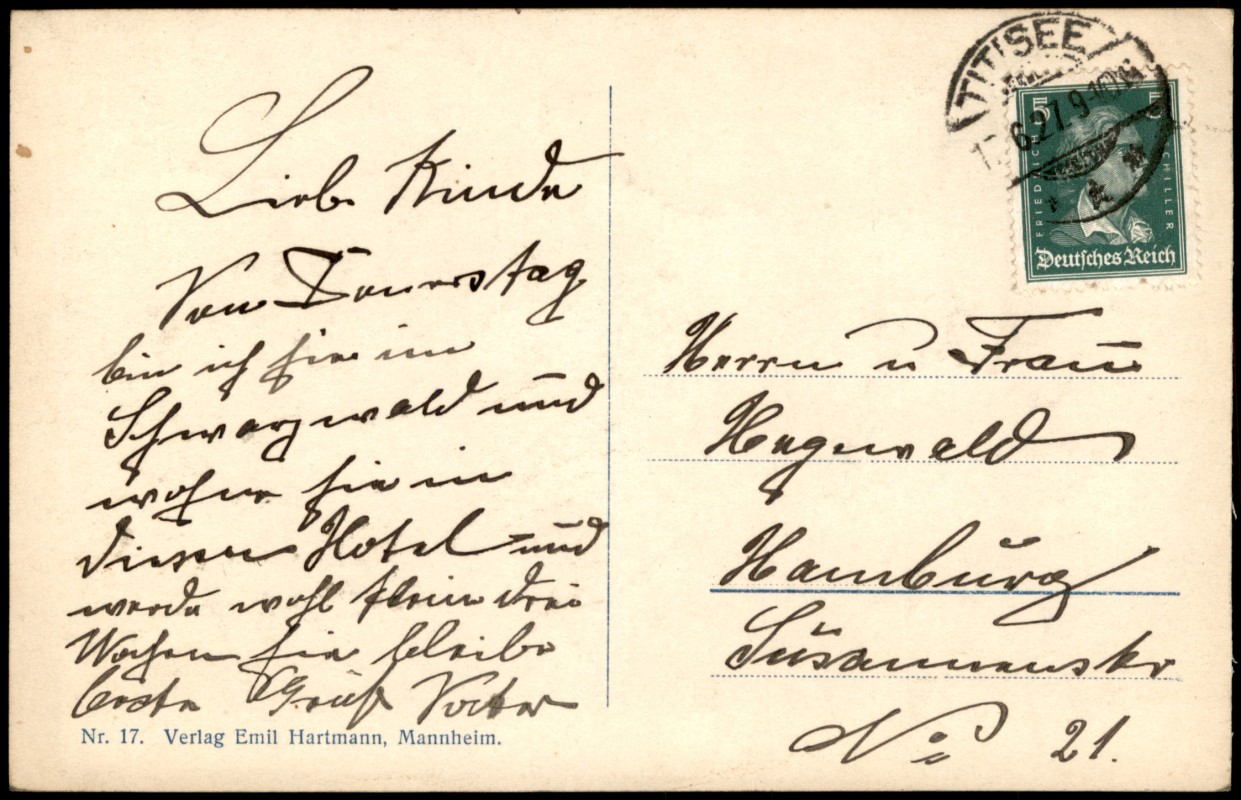 Liebe Kinder
Von Donnerstag
bin ich hier im
Schwarzwald und
wohne hier in
diesem Hotel und
werde wohl klein drei
Wochen hier bleibe
beste Grüße Vater
Nr. 17. Verlag Emil Hartmann, Mannheim.
TITISEE
6.27.9-10
5
5
FRIEDRICH SCHILLER
Deutsches Reich
Herrn u Frau
Hegewald
Hamburg
Susannenstr
No 21.